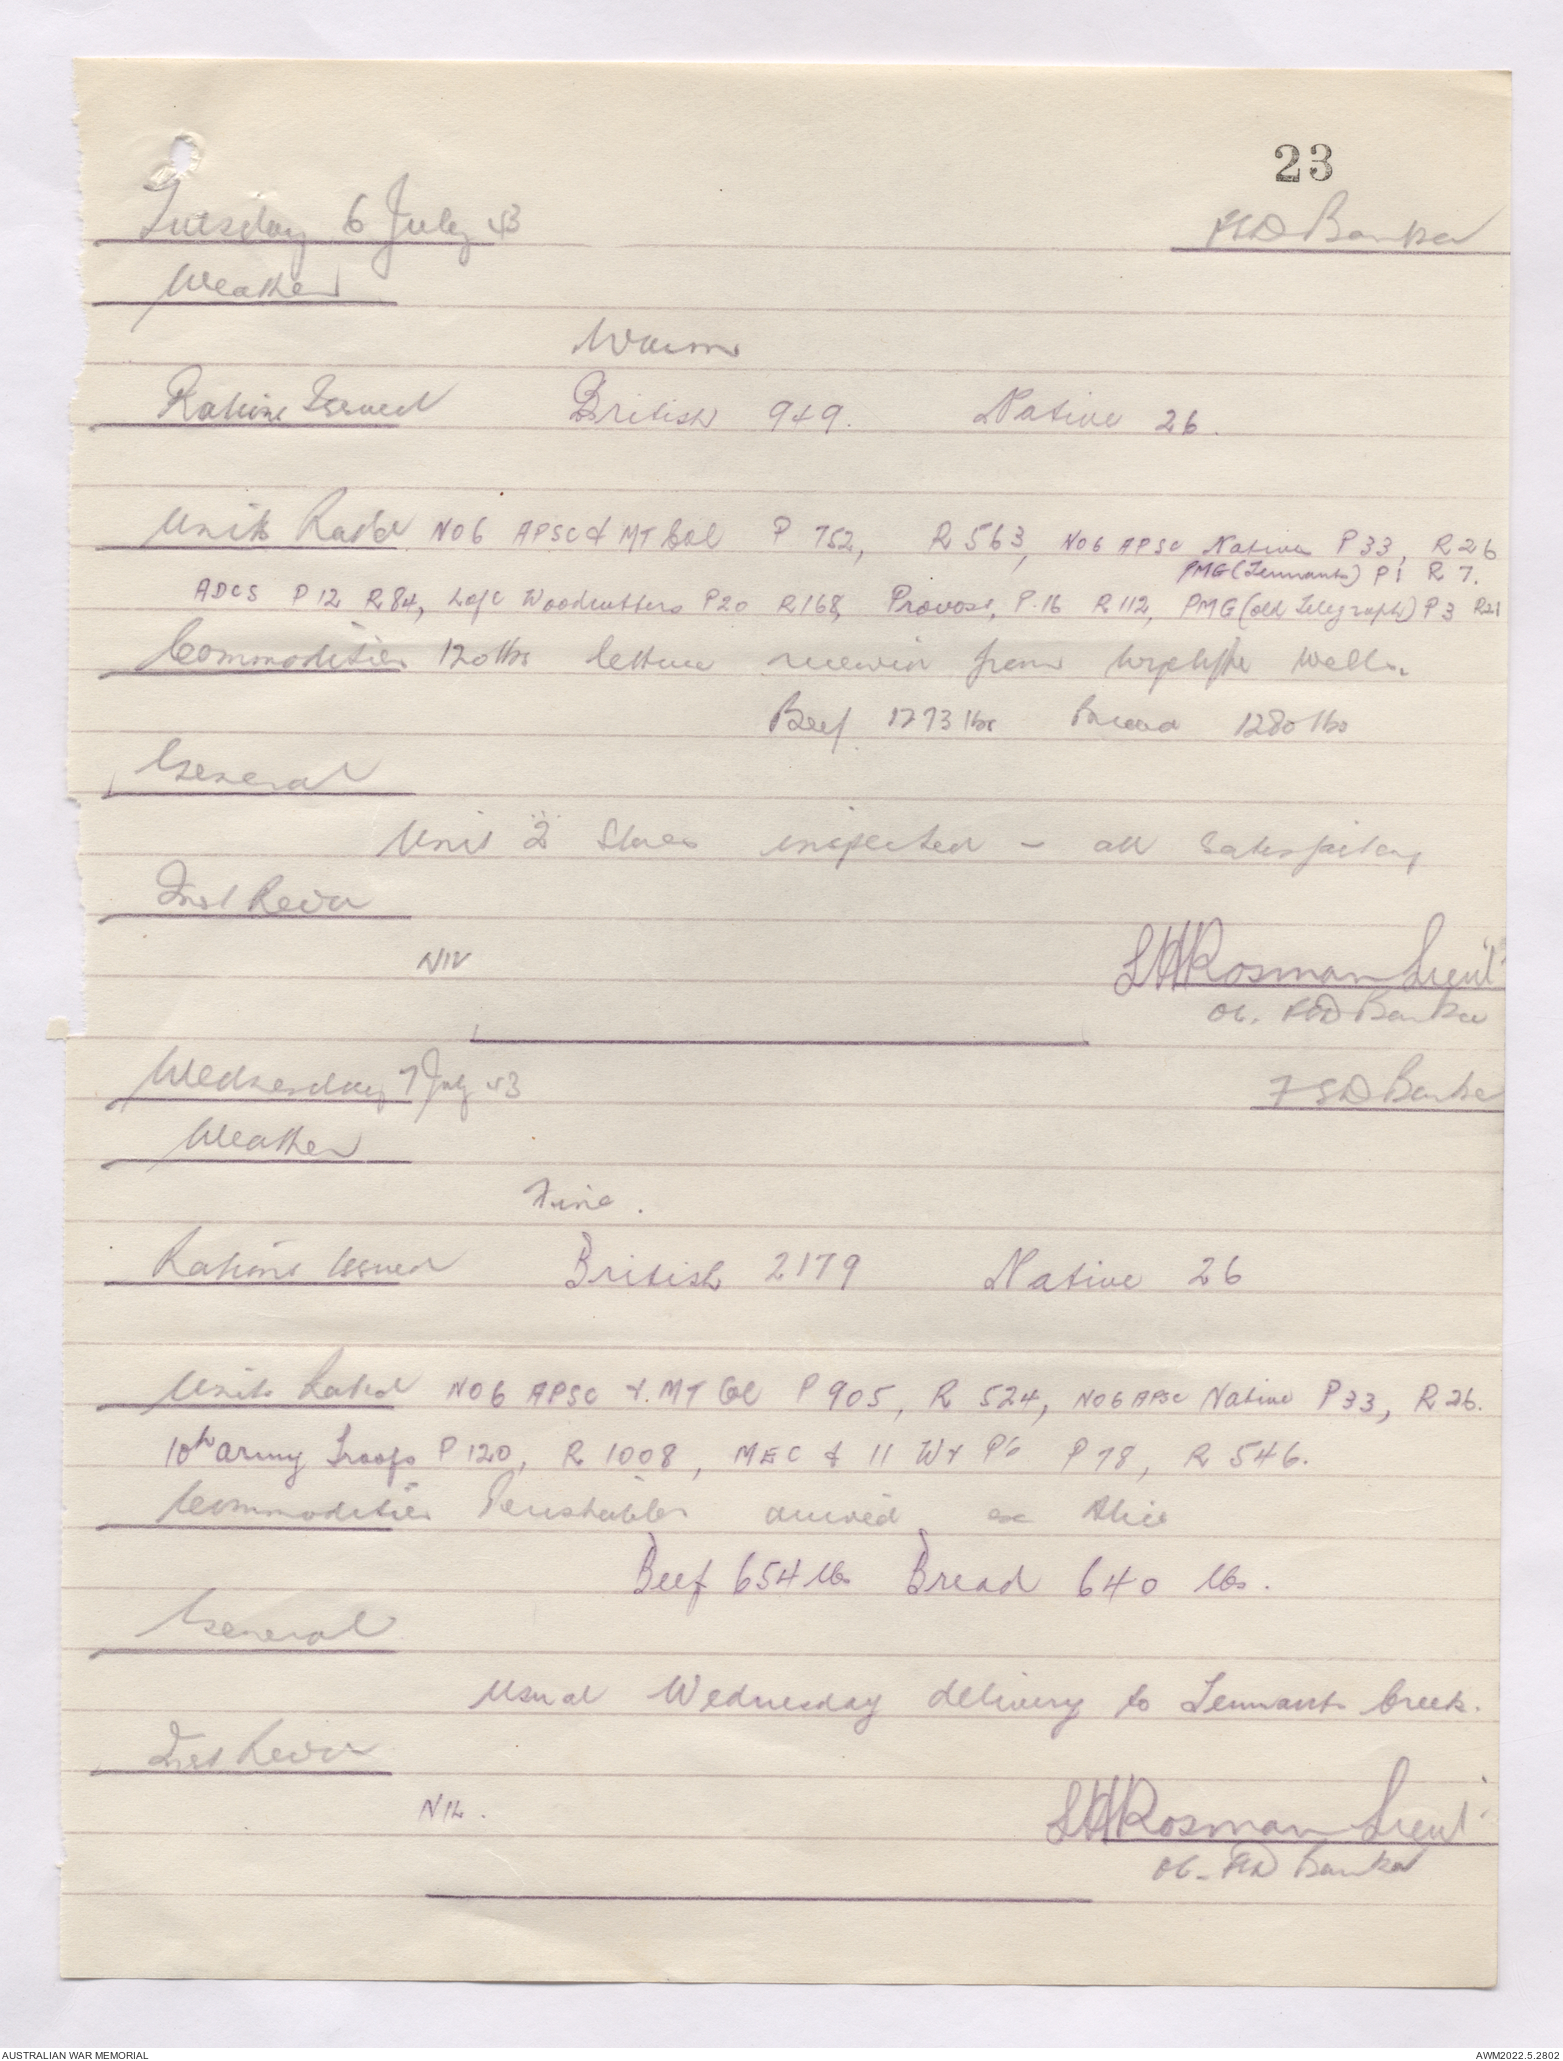 23
Tuesday 6 July 43 FSD Banka
Weather
Warm
Rations Issued British 949. Native 26.
Units Rated NO6 APSC & MT Col P 752, R 563, NO6 APSC Native P 33, R 26
PMG (Tennants) P1 R 7.
ADCS P 12 R 84, LofC Woodcutters P20 R168, Provost, P.16 R 112, PMG (old Telegraph) P 3 R21
Commodities 120 lbs lettuce from Wycliffe Wells.
Beef 1273 lbs Bread 1280 lbs
General
Unit Q Stores inspected - all satisfactory
Inst Recv
NIL
LHRosman Lieut
OC. FSD Banka
Wednesday 7 July 43 FSD Banka
Weather
Fine.
Rations Issued British 2179 Native 26
Units Rated NO6 APSC & MT Col P 905, R 524, NO6 APSC Native P 33, R 26.
10th Army Troops P 120, R 1008, MEC & 11 P 78, R 546.
Commodities Perishables arrived ex Alice
Beef 654 lbs Bread 640 lbs.
General
Usual Wednesday delivery to Tennants Creek.
Inst Recv
NIL.
LHRosman Lieut
OC. FSD Banka
AUSTRALIAN WAR MEMORIAL AWM2022.5.2802